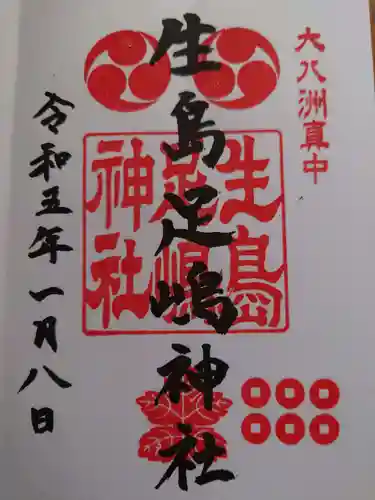 大八洲真中
生島足嶋神社
生島足嶋神社
令和五年一月八日